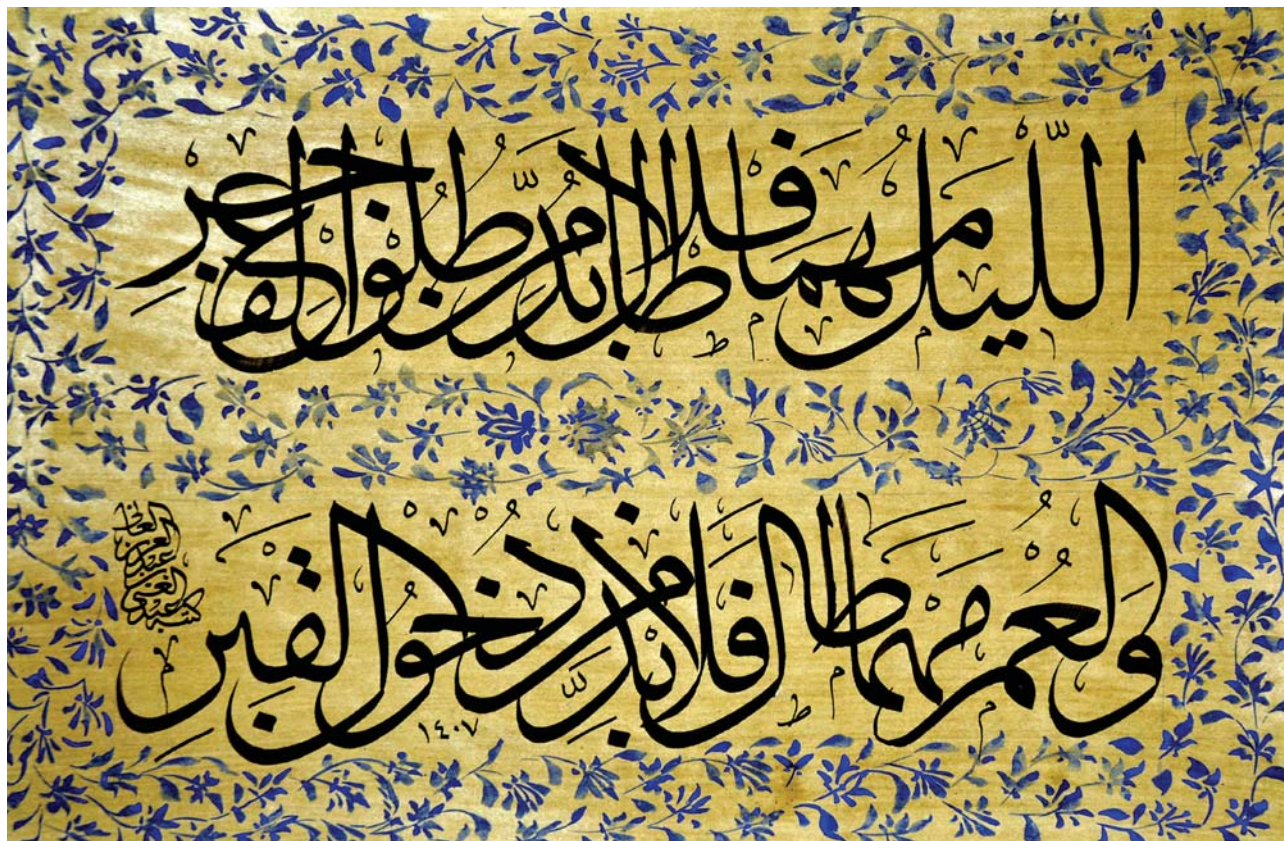 اللَّيْلُ مَهْمَا طَالَ فَلَا بُدَّ مِنْ طُلُوعِ الْفَجْرِ
وَالْعُمْرُ مَهْمَا طَالَ فَلَا بُدَّ مِنْ دُخُولِ الْقَبْرِ
١٤٠٧